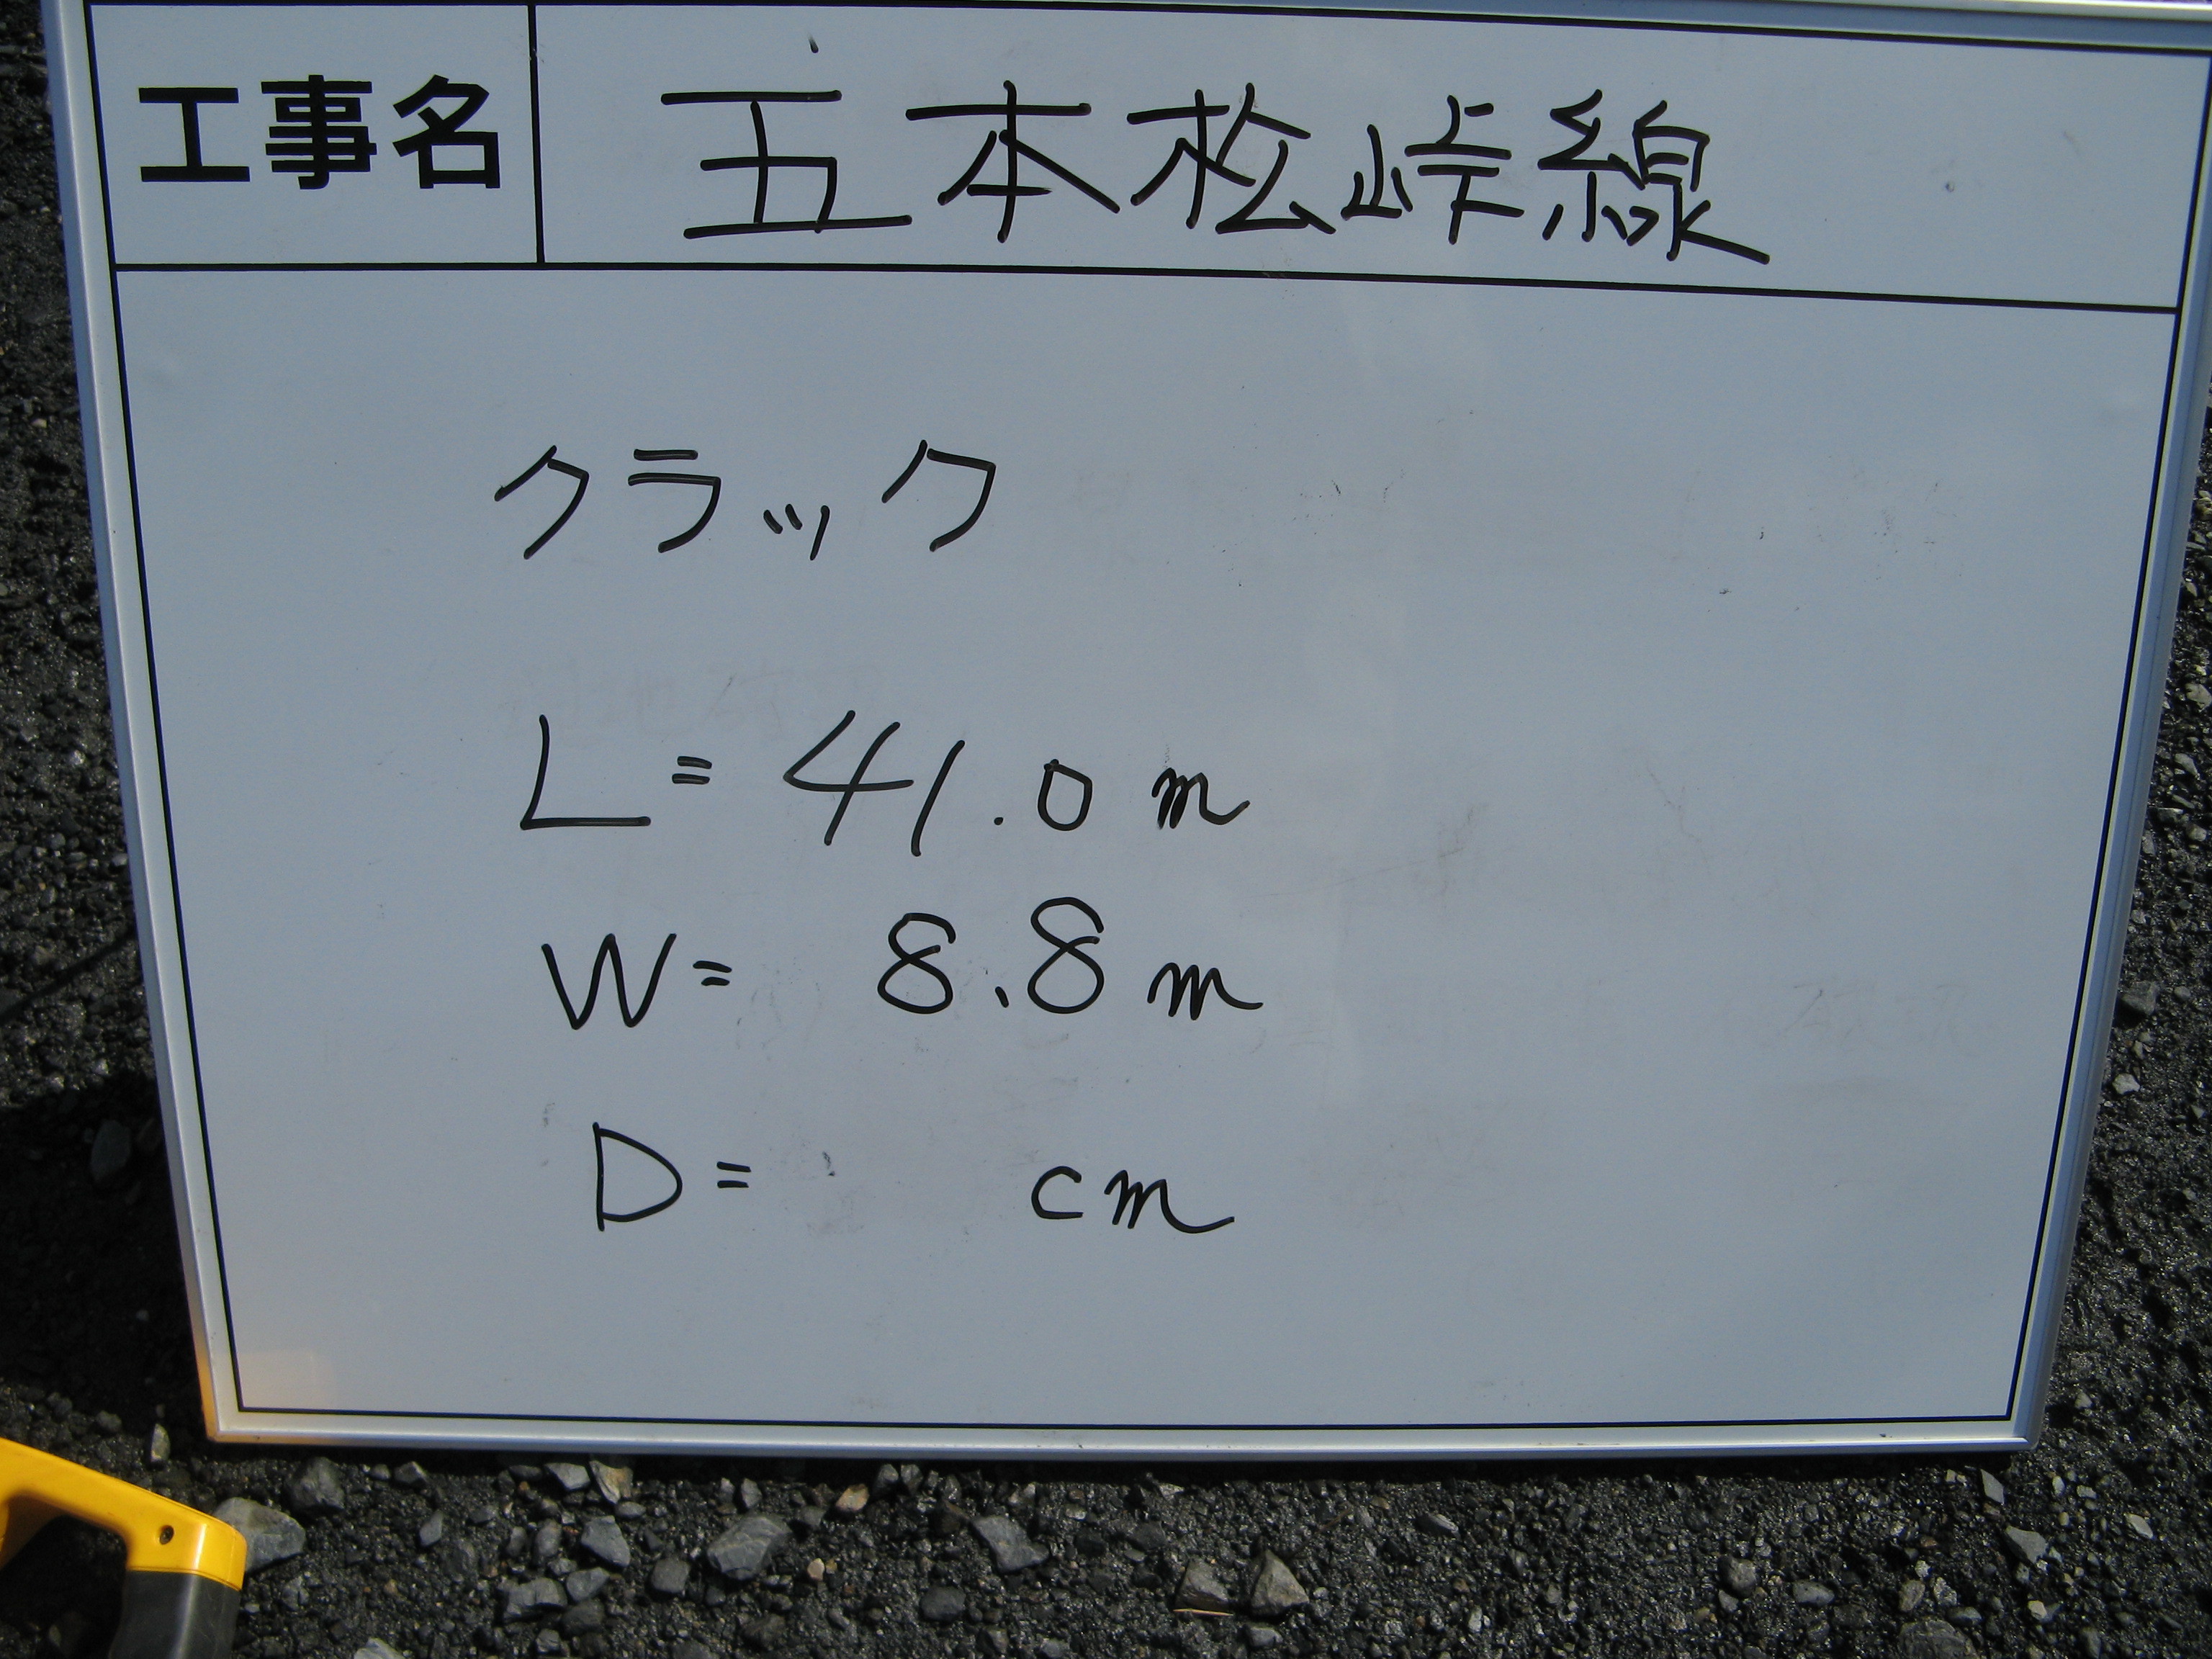 工事名 五本松峠線
クラック
L= 41.0 m
W= 8.8 m
D= cm